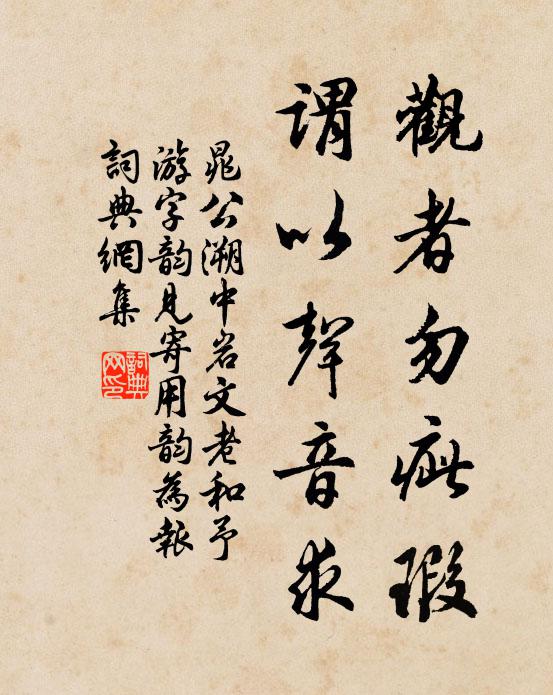 觀者勿疵瑕
謂以聲音求
晁公溯中岩文老和予
游字韵見寄用韵為報
詞典網集
詞典网印